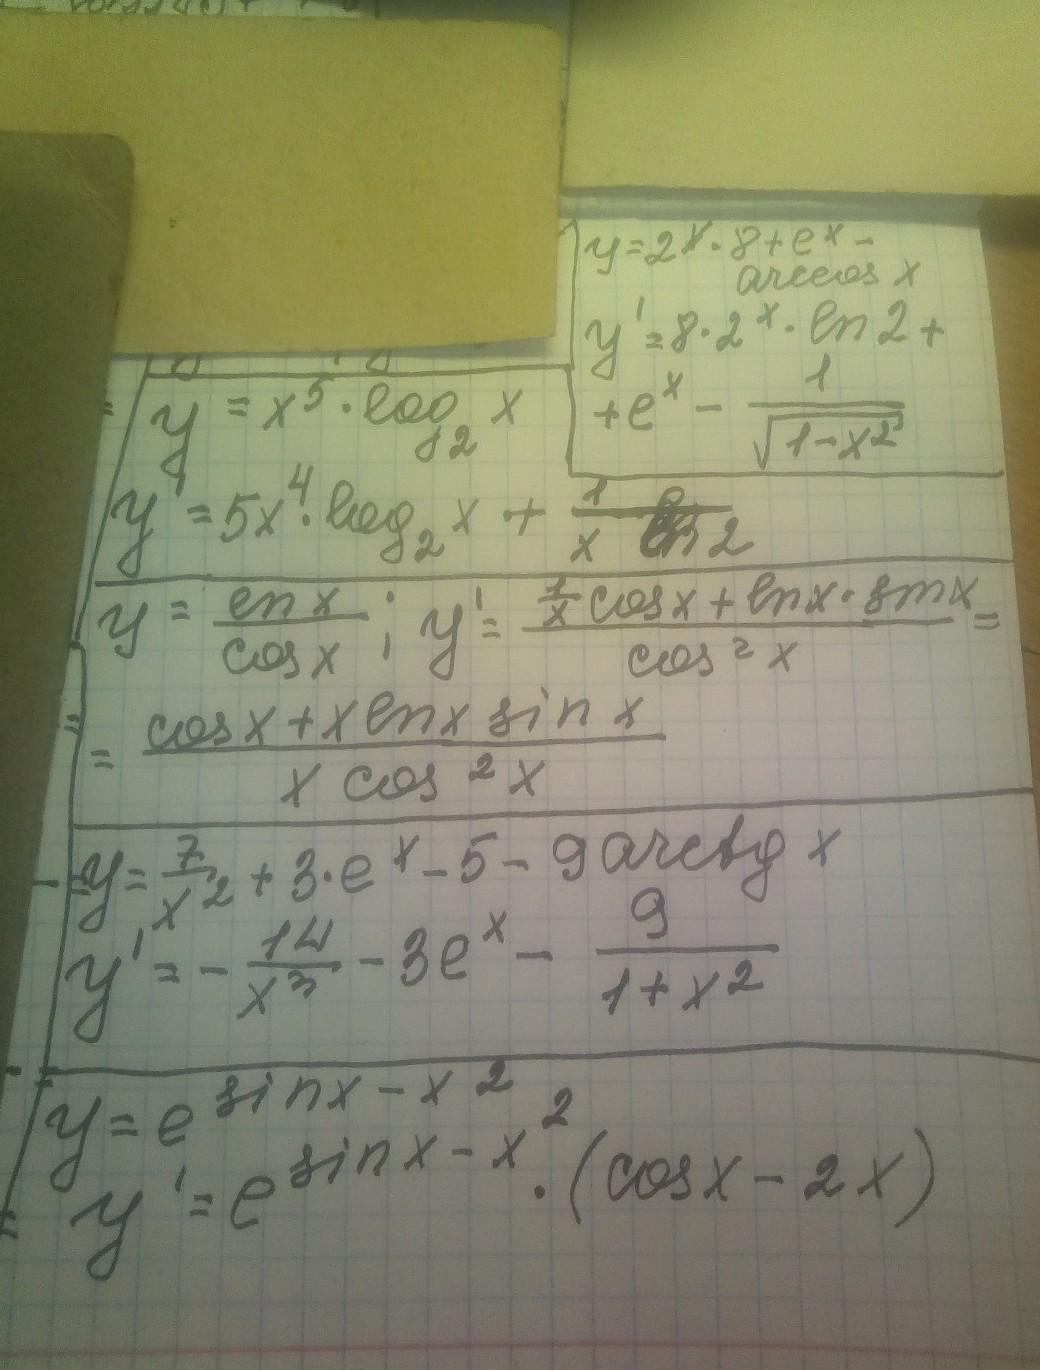 y = 2^x · 8 + e^x −
arccos x
y' = 8 · 2^x · ln 2 +
+ e^x − 1/√(1−x^2)
y = x^5 · log_2 x
y' = 5x^4 · log_2 x + 1/(x ln 2)
y = ln x / cos x ; y' = (1/x cos x + ln x · sin x) / cos^2 x =
= (cos x + x ln x sin x) / (x cos^2 x)
y = 7/x^2 + 3 · e^x − 5 − 9 arctg x
y' = − 14/x^3 − 3e^x − 9/(1 + x^2)
y = e^(sin x − x^2)
y' = e^(sin x − x^2) · (cos x − 2x)